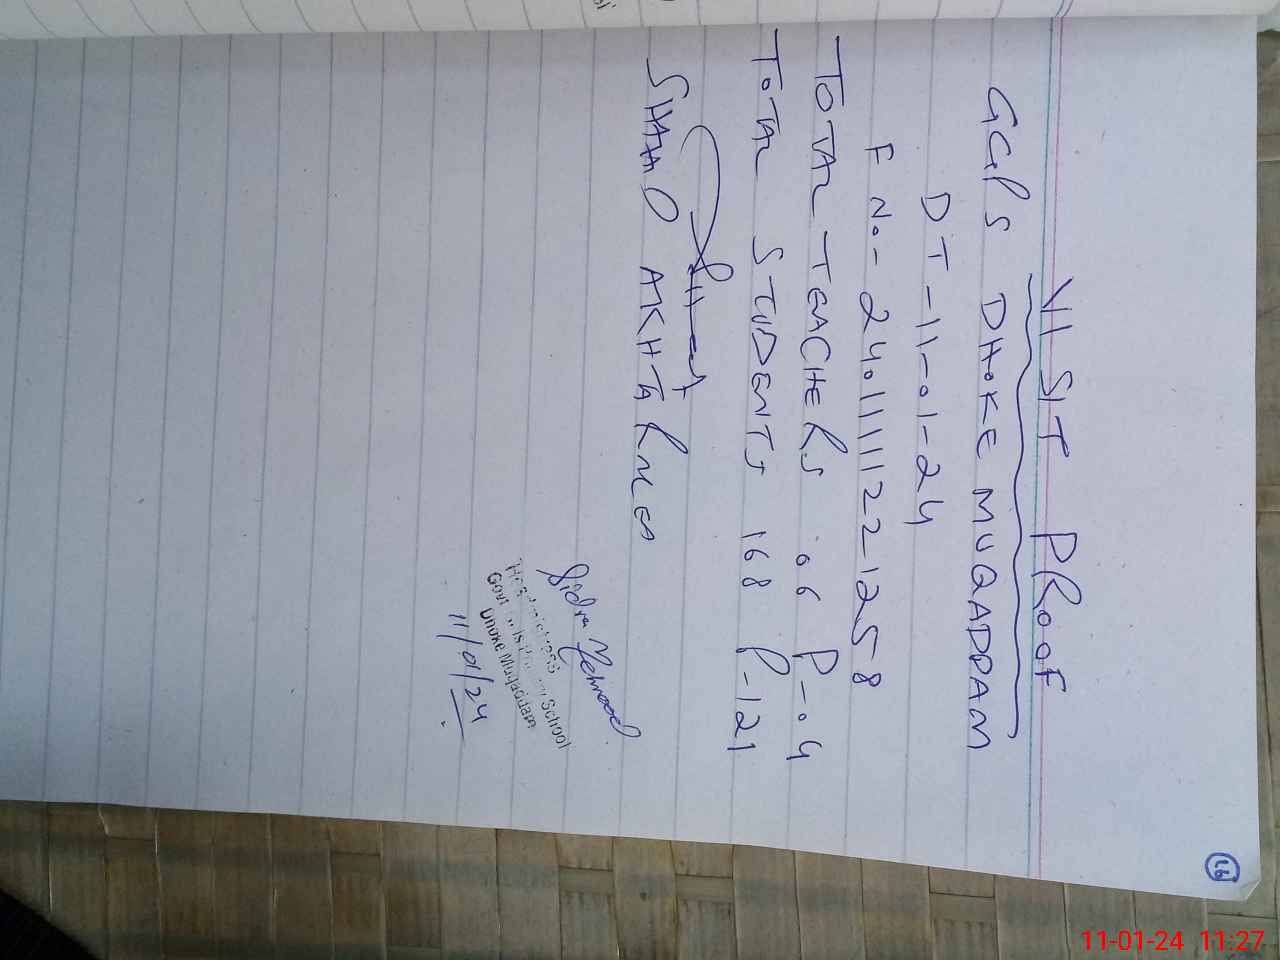 VISIT PROOF
GGPS DHOKE MUQADDAM
DT-11-01-24
F No- 2401111221258
TOTAL TEACHERS 06 P-04
TOTAL STUDENTS 168 P-121
AKHTAR MEA
Sidra Mehmood
Headmistress
Govt School
Dhoke Muqaddam
11/01/24
16
11-01-24 11:27